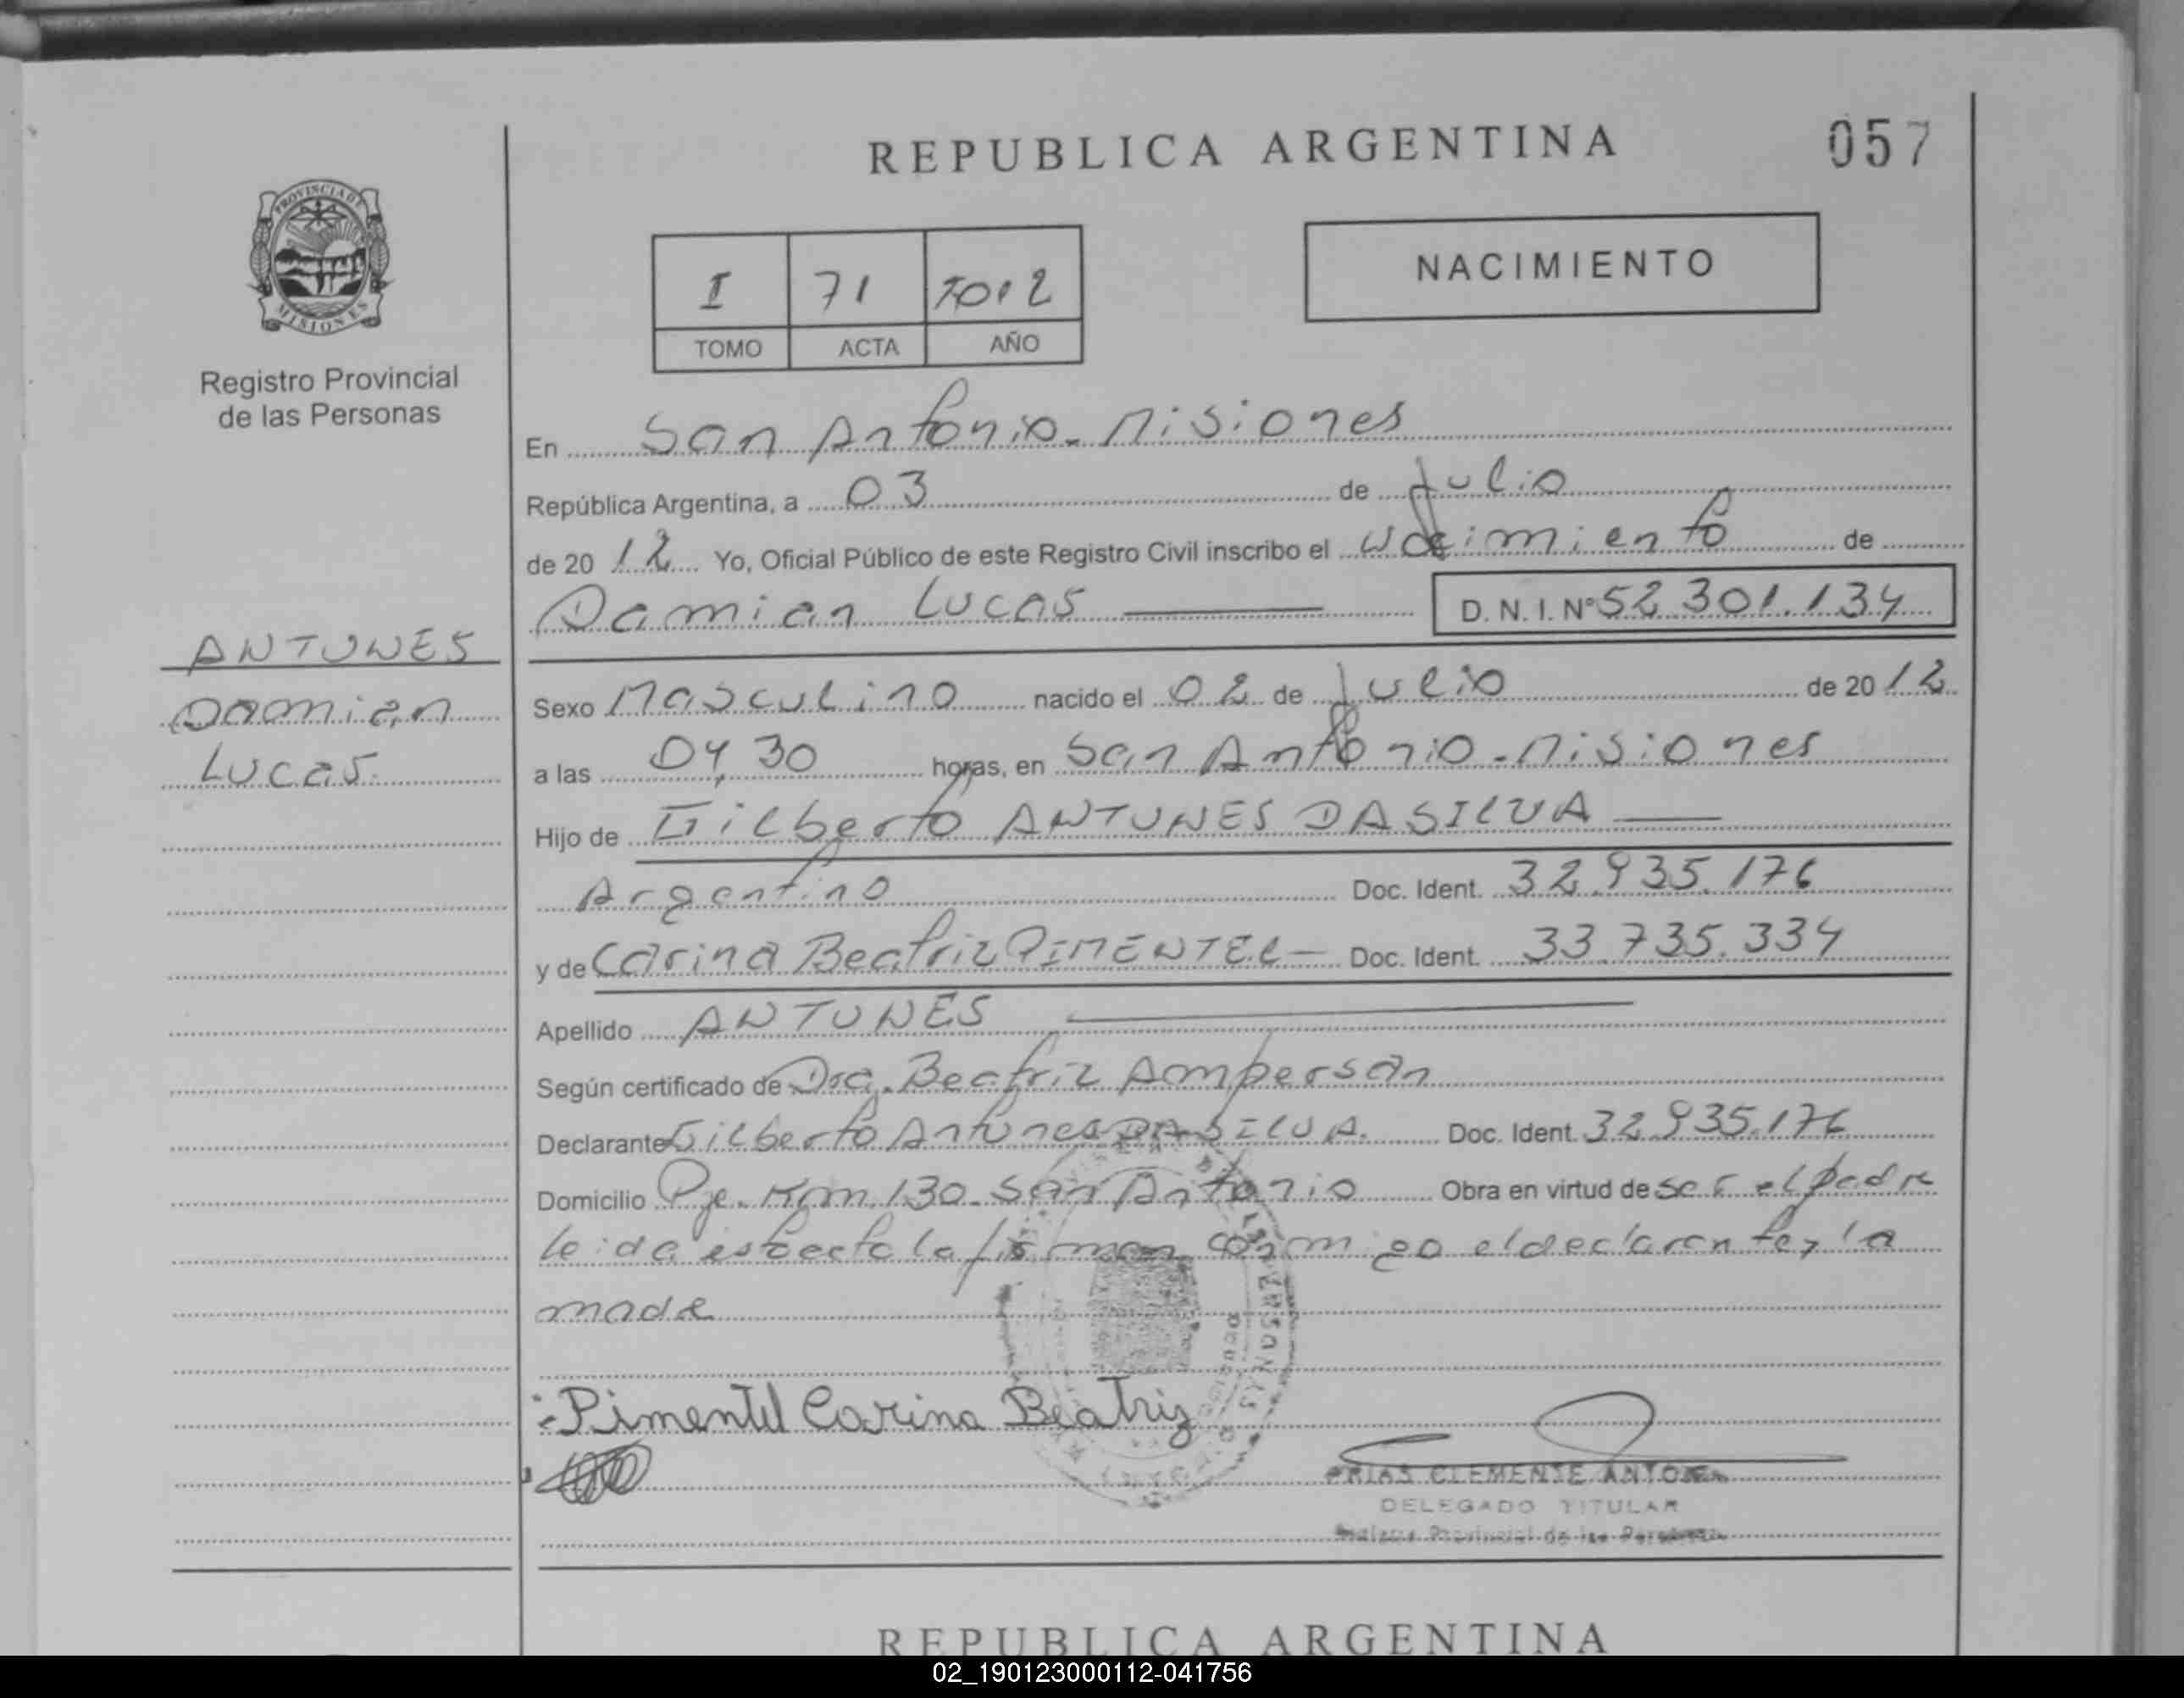 REPUBLICA ARGENTINA
057
PROVINCIA DE
MISIONES
Registro Provincial
de las Personas
I 71 2012
TOMO ACTA AÑO
NACIMIENTO
En San Antonio - Misiones
República Argentina, a 03 de Julio
de 2012 Yo, Oficial Público de este Registro Civil inscribo el Nacimiento de
Damian Lucas D. N. I. Nº 52.301.134
ANTUNES
Damian
Lucas
Sexo Masculino nacido el 02 de Julio de 2012
a las 04,30 horas, en San Antonio - Misiones
Hijo de Gilberto ANTUNES DA SILVA
Argentino Doc. Ident. 32.935.176
y de Carina Beatriz PIMENTEL Doc. Ident. 33.735.334
Apellido ANTUNES
Según certificado de Dra. Beatriz Amperson
Declarante Gilberto Antunes DA SILVA. Doc. Ident. 32.935.176
Domicilio Pje. Km. 130 - San Antonio Obra en virtud de ser el padre
leida esta acta la firman conmigo el declarante y la
madre
Pimentel Carina Beatriz
FRIAS CLEMENTE ANTON
DELEGADO TITULAR
Provincial de las Personas
REPUBLICA ARGENTINA
02_190123000112-041756